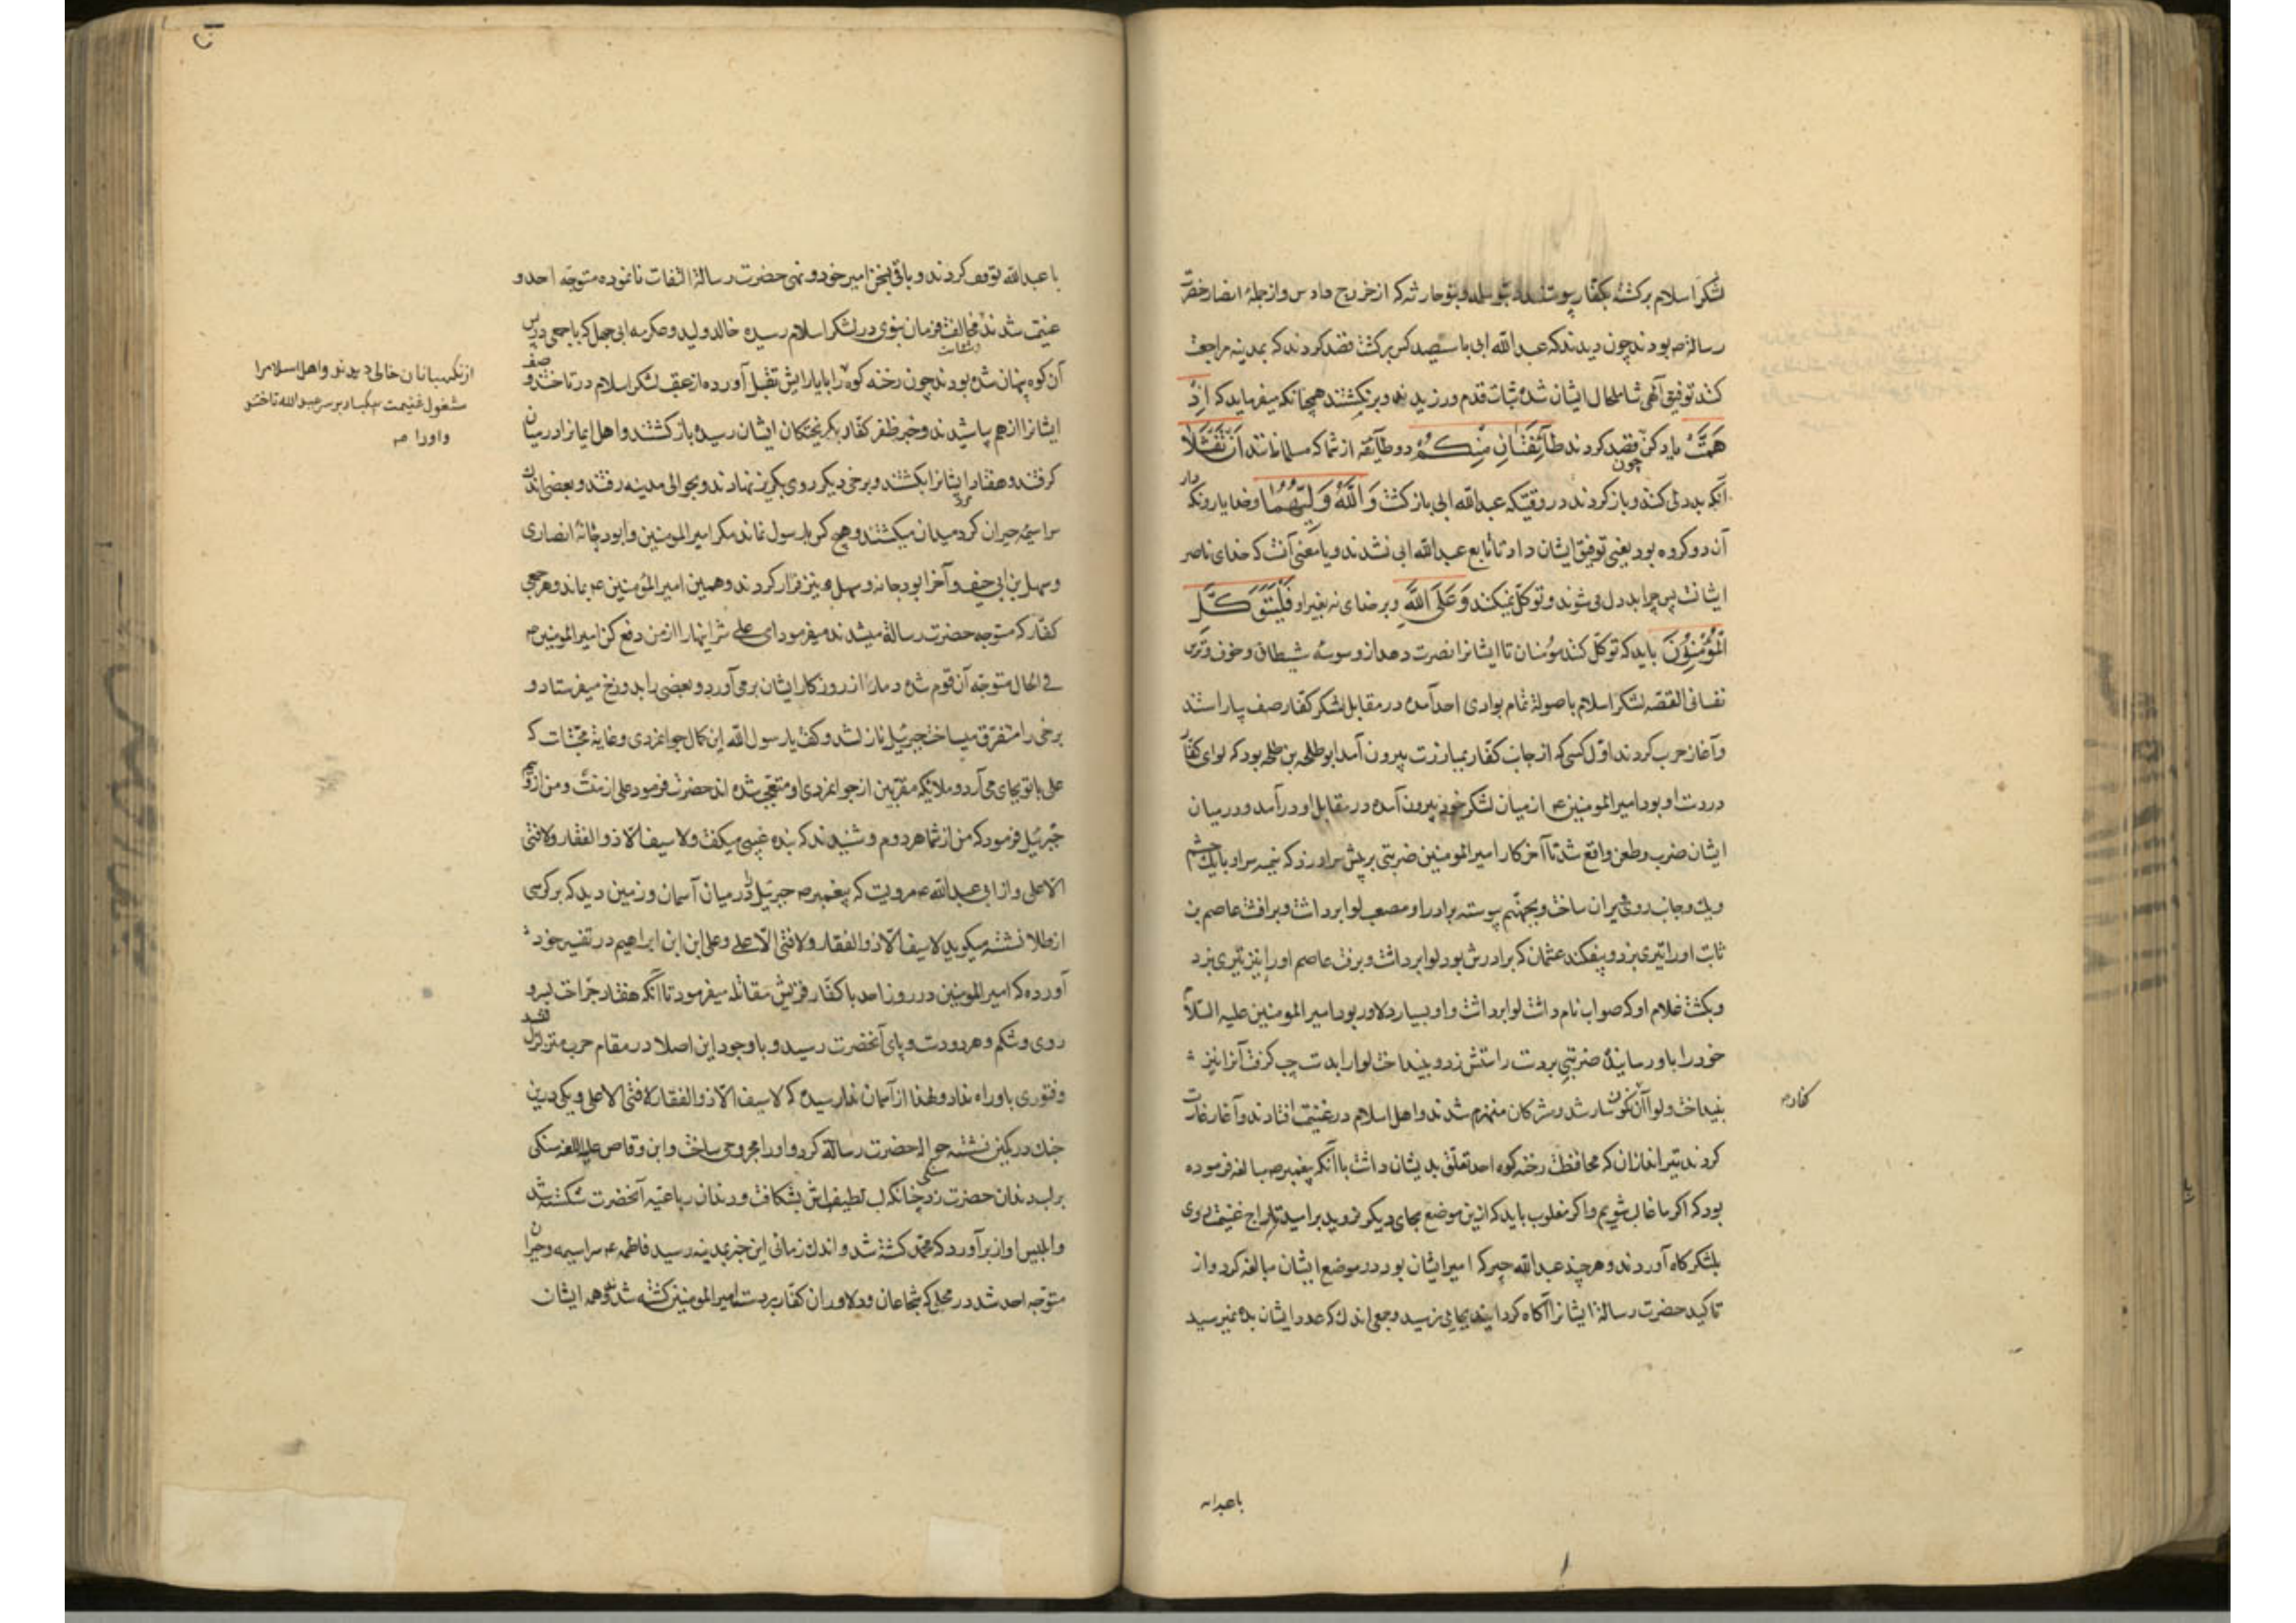 لشکر اسلام برکشته بکفار پیوستند بنو سلمه و بنو حارثه که از خزرج و اوس و از جملهٔ انصار حضرت
رسالة ص بودند چون دیدند که عبدالله ابی با سیصد کس برکشت قصد کردند که بمدینه مراجعت
کنند توفیق آلهی شامل حال ایشان شده ثبات قدم ورزیدند و برنکشتند همچنانکه میفرماید که اِذْ
هَمَّتْ یاد کن چون قصد کردند طَآئِفَتَانِ مِنْكُمْ دو طآئفه از شما که مسلمانانند اَنْ تَفْشَلَا
آنکه بددلی کنند و باز کردند در وقتیکه عبدالله ابی باز کشت وَاللّٰهُ وَلِیُّهُمَا و خدا یار و نکه دار
آن دو کروه بود یعنی توفیق ایشان داد تا تابع عبدالله ابی نشدند و یا معنی آنست که خدای ناصر
ایشانست پس چرا بددل می شوند و توکل نمیکنند وَعَلَی اللّٰهِ و بر خدای نه بغیر او فَلْیَتَوَكَّلِ
الْمُؤْمِنُوْنَ باید که توکل کنند مؤمنان تا ایشانرا نصرت دهد از وسوسهٔ شیطانی و خوف و ترس
نفسانی القصه لشکر اسلام با صولة تمام بوادی احد آمده در مقابل لشکر کفار صف بیاراستند
و آغاز حرب کردند اول کسی که از جانب کفار بمبارزت بیرون آمد ابو طلحه بن طلحه بود که لوای کفار
در دست او بود امیرالمومنین ع از میان لشکر خود بیرون آمده در مقابل او درآمد و در میان
ایشان ضرب و طعن واقع شد تا آخر کار امیرالمومنین ضربتی بر پیش سر او زد که نیمه سر او با یک چشم
و یک جانب روی ویران ساخت و بجهنم پیوسته برادر او مصعب لوا برداشت و برافت عاصم بن
ثابت او را تیری بزد و بیفکند عثمان که برادرش بود لوا برداشت و برفت عاصم او را نیز تیری بزد
و بکشت غلام او که صواب نام داشت لوا برداشت و او بسیار دلاور بود امیرالمومنین علیه السلام
خود را باو رسانیده ضربتی بر دست راستش زد و بینداخت لوا را بدست چپ کرفت آنرا نیز
بینداخت و لوا آن نکونسار شد و مشرکان منهزم شدند و اهل اسلام در غنیمت افتادند و آغاز غارت
کفار ص
کردند تیراندازان که محافظت رخنه کوه احد تعلق بدیشان داشت با آنکه پیغمبر ص مبالغه فرموده
بود که اکر ما غالب شویم و اکر مغلوب باید که ازین موضع بجای دیکر نروید بر امید تاراج غنیمت روی
بلشکرگاه آوردند و هرچند عبدالله جبیر که امیر ایشان بود در موضع ایشان مبالغه کرد و از
تاکید حضرت رسالة ایشانرا آکاه کردانید بجایی نرسید و جمعی اندک که عدد ایشان بده نمیرسید
باعبدالله
با عبدالله توقف کردند و باقی بسخن امیر خود و نهی حضرت رسالة التفات نانموده متوجه احد و
غنیمت شدند مخالفت فرمان نبوی در لشکر اسلام رسیده خالد ولید و عکرمه ابی جهل که با جمعی در پس
آن کوه پنهان شده بودند چون رخنه کوه را بایارایش تقبل آورده از عقب لشکر اسلام درتاختند و صف
از نکهبانان خالی دیدند و اهل اسلام را
مشغول غنیمت بیکبار بر سر عبدالله تاختند
و او را ص
ایشانرا از هم پاشیدند و خبر ظفر کفار بکریختکان ایشان رسیده باز کشتند و اهل ایمانرا در میان
کرفتند و هفتاد ایشانرا بکشتند و برخی دیکر روی بکریز نهادند و بحوالی مدینه رفتند و بعضی از ایشان
سراسیمه حیران کرد میدان میکشتند و هیچ کس با رسول نماند مکر امیرالمومنین و ابودجانهٔ انصاری
و سهل بن ابی حنیف و آخر ابودجانه و سهل نیز فرار کردند و همین امیرالمؤمنین ع بماند و هر جمعی
کفار که متوجه حضرت رسالة میشدند میفرمود ای علی شر اینها را از من دفع کن امیرالمومنین ع
فی الحال متوجه آن قوم شده دمار از روزکار ایشان برمی آورد و بعضی را بدوزخ میفرستاد و
برخی را متفرق میساخت جبرئیل نازل شد و کفت یا رسول الله این کمال جوانمردی و غایة محبتست که
علی با تو بجای می آرد و ملائیکه مقربین از جوانمردی او متعجب شده اند حضرت فرمود علی از منست و من از ویم
جبرئیل فرمود که من از شما هر دوم و شنیدند که بنده غیبی میکفت و لا سیف الا ذوالفقار ولا فتی
الا علی و از ابی عبدالله ع مرویست که پیغمبر ص جبرئیل را در میان آسمان و زمین دید که بر کرسی
از طلا نشسته میکوید لا سیف الا ذوالفقار ولا فتی الا علی و علی ابن ابراهیم در تفسیر خود
آورده که امیرالمومنین در روز احد با کفار قریش مقاتله میفرمود تا آنکه هفتاد جراحت بسر و
روی و شکم و هر دو دست و پای آنحضرت رسید و با وجود این اصلا در مقام حرب متزلزل نشد
و فتوری باو راه نداد و لهذا از آسمان ندا رسیده که لا سیف الا ذوالفقار لا فتی الا علی و یکی درین
جنك در کمین نشسته حواله حضرت رسالة کرد و او را مجروح ساخت و ابن وقاص علیه اللعنه سنکی
بر لب دندان حضرت زد چنانکه لب لطیفش بشکافت و دندان رباعیه آنحضرت شکسته شد
و ابلیس آواز برآورد که محمد کشته شد و اندک زمانی این خبر بمدینه رسید فاطمه ع سراسیمه و حیران
متوجه احد شد در محلی که شجاعان و دلاوران کفار بر دست امیرالمومنین کشته شدند و همه ایشان